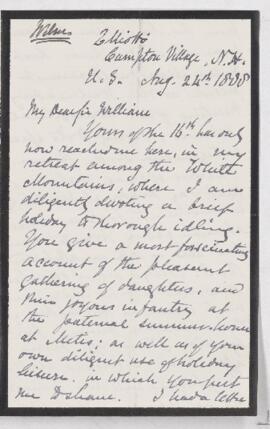 Elliotts
Campton Village, N.H.
U.S. Aug. 24th 1888
My Dear Sir William
Yours of the 16th has only
now reached me here, in my
retreat among the White
Mountains, where I am
diligently devoting a brief
holiday to thorough idling.
You give a most fascinating
account of the pleasant
gathering of daughters, and
their joyous infantry at
the paternal summer home
at Metis; as well as of your
own diligent use of holiday
leisure. in which you put
me to shame. I had a letter